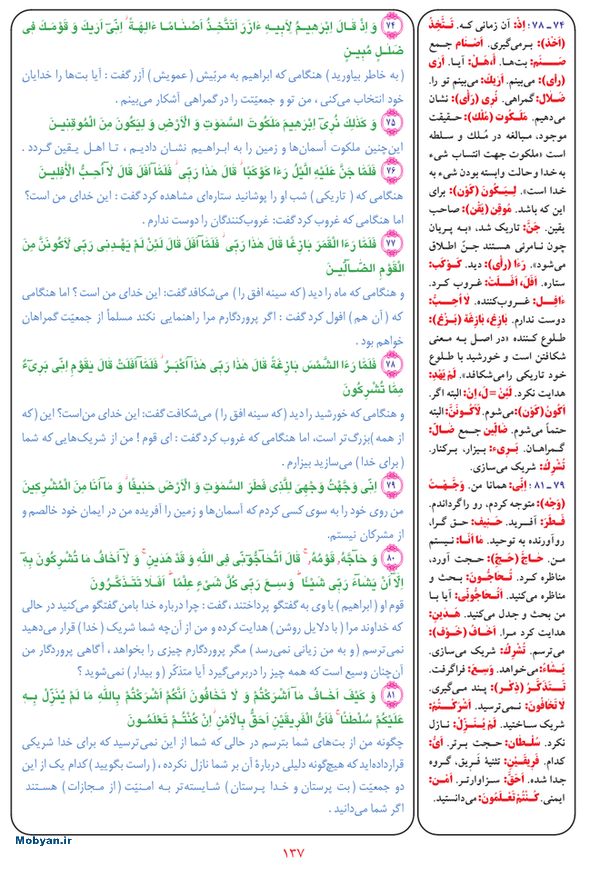 ۷۴ وَ اِذْ قالَ اِبْرهیمُ لِاَبیهِ ءازَرَ اَتَتَّخِذُ اَصْنامًا ءالِهَةً ۖ اِنّی اَریكَ وَ قَوْمَكَ فی
ضَللٍ مُبینٍ
( به خاطر بیاورید ) هنگامی که ابراهیم به مربّیش ( عمویش ) آزر گفت : آیا بت‌ها را خدایان
خود انتخاب می‌کنی ، من تو و جمعیّتت را در گمراهی آشکار می‌بینم .
۷۵ وَ كَذلِكَ نُری اِبْرهیمَ مَلَكُوتَ السَّموتِ وَ الْاَرْضِ وَ لِیَكُونَ مِنَ الْمُوقِنینَ
این‌چنین ملکوت آسمان‌ها و زمین را به ابـراهیـم نشـان دادیـم ، تـا اهـل یـقین گـردد .
۷۶ فَلَمّا جَنَّ عَلَیْهِ الَّیْلُ رَءَا كَوْكَبًا ۖ قالَ هذا رَبّی ۖ فَلَمّا اَفَلَ قالَ لا اُحِبُّ الْافِلینَ
هنگامی که ( تاریکی ) شب او را پوشانید ستاره‌ای مشاهده کرد گفت : این خدای من است؟
اما هنگامی که غروب کرد گفت: غروب‌کنندگان را دوست ندارم .
۷۷ فَلَمّا رَءَا الْقَمَرَ بازِغًا قالَ هذا رَبّی ۖ فَلَمّا اَفَلَ قالَ لَئِنْ لَمْ یَهْدِنی رَبّی لَاَكُونَنَّ مِنَ
الْقَوْمِ الضّالّینَ
و هنگامی که ماه را دید (که سینه افق را ) می‌شکافد گفت: این خدای من است ؟ اما هنگامی
که ( آن هم ) افول کرد گفت : اگر پروردگارم مرا راهنمایی نکند مسلماً از جمعیّت گمراهان
خواهم بود .
۷۸ فَلَمّا رَءَا الشَّمْسَ بازِغَةً قالَ هذا رَبّی هذا اَكْبَرُ ۖ فَلَمّا اَفَلَتْ قالَ یقَوْمِ اِنّی بَریءٌ
مِمّا تُشْرِكُونَ
و هنگامی که خورشید را دید (که سینه افق را ) می‌شکافت گفت: این خدای من‌است؟ این (که
از همه )بزرگ‌تر است، اما هنگامی که غروب کرد گفت : ای قوم ! من از شریک‌هایی که شما
( برای خدا ) می‌سازید بیزارم .
۷۹ اِنّی وَجَّهْتُ وَجْهِیَ لِلَّذی فَطَرَ السَّموتِ وَ الْاَرْضَ حَنیفًا ۖ وَ ما اَنَا مِنَ الْمُشْرِكینَ
من روی خود را به سوی کسی کردم که آسمان‌ها و زمین را آفریده من در ایمان خود خالصم و
از مشرکان نیستم.
۸۰ وَ حاجَّهُ قَوْمُهُ ۚ قالَ اَتُحاجُّونّی فِی اللّهِ وَ قَدْ هَدینِ ۚ وَ لا اَخافُ ما تُشْرِكُونَ بِهِ
اِلّا اَنْ یَشاءَ رَبّی شَیْئًا ۗ وَسِعَ رَبّی كُلَّ شَیْءٍ عِلْمًا ۗ اَفَلا تَتَذَكَّرُونَ
قوم او ( ابراهیم ) با وی به گفتگو پرداختند ، گفت : چرا درباره خدا بامن گفتگو می‌کنید در حالی
که خداوند مرا ( با دلایل روشن ) هدایت کرده و من از آن‌چه شما شریک ( خدا ) قرار می‌دهید
نمی‌ترسم ( و به من زیانی نمی‌رسد ) مگر پروردگارم چیزی را بخواهد ، آگاهی پروردگار من
آن‌چنان وسیع است که همه چیز را دربرمی‌گیرد آیا متذکّر ( و بیدار ) نمی‌شوید ؟
۸۱ وَ كَیْفَ اَخافُ ما اَشْرَكْتُمْ وَ لا تَخافُونَ اَنَّكُمْ اَشْرَكْتُمْ بِاللّهِ ما لَمْ یُنَزِّلْ بِهِ
عَلَیْكُمْ سُلْطنًا ۚ فَاَیُّ الْفَریقَیْنِ اَحَقُّ بِالْاَمْنِ ۖ اِنْ كُنْتُمْ تَعْلَمُونَ
چگونه من از بت‌های شما بترسم در حالی که شما از این نمی‌ترسید که برای خدا شریکی
قرارداده‌اید که هیچ‌گونه دلیلی دربارهٔ آن بر شما نازل نکرده ، ( راست بگویید ) کدام یک از این
دو جمعیّت ( بت پرستان و خدا پرستان ) شایسته‌تر به امنیّت ( از مجازات ) هستند
اگر شما می‌دانید .
۷۴ ـ ۷۸ : اِذْ: آن زمانی که. تَـتَّخِذُ
(اَخَذَ): برمی‌گیری. اَصْنام جمع
صَـنَـم: بت‌ها. أ، هَـلْ: آیـا. اَری
(رأی): می‌بینم. اَریكَ: می‌بینم تو را.
ضَلال: گمراهی. نُری (رَأی): نشان
می‌دهیم. مَلَكُوت (مَلَك): حقیقت
موجود، مبالغه در مُلك و سلطه
است «ملکوت جهت انتساب شیء
به خدا و حالت وابسته بودن شیء به
خدا است». لِیَـكُونَ (كَوَن): برای
این که باشد. مُوقِن (یَقَن): صاحب
یقین. جَنَّ: تاریک شد، «بـه پریان
چون نامرئی هستند جنّ اطلاق
می‌شود». رَءَا (رأی): دید. كَوْكَب:
ستاره. اَفَلَ، اَفَـلَـتْ: غروب کـرد.
ءافِـل: غروب‌کننده. لا اُحِبُّ:
دوست ندارم. بازِغ، بازِغَة (بَزَغ):
طلـوع کننده «در اصل بـه معنی
شکافتن است و خورشید با طلوع
خود تاریکی را می‌شکافد». لَمْ یَهْدِ:
هدایت نکرد. لَئِنْ = لَ، اِنْ: البته اگر.
اَكُونُ (كَوَن): می‌شوم. لَاَكُونَنَّ: البته
حتماً می‌شوم. ضالّین جمع ضالّ:
گمراهان. بَریء: بیزار، برکنار.
تُشْرِكُ: شریک می‌سازی.
۷۹ ـ ۸۱ : اِنّی: همانا من. وَجَّهْتُ
(وَجَه): متوجه کردم، رو را گرداندم.
فَطَرَ: آفـریـد. حَنیف: حق گـرا،
روآورنده به توحید. ما اَنَا: نیستم
من. حاجَّ (حَجّ): حـجت آورد،
مناظره کـرد. تُـحاجُّونَ: بحث و
مناظره می‌کنید. اَتُحاجُّونّی: آیا با
من بحث و جدل می‌کنید. هَـدینِ:
هدایت کرد مـرا. اَخافُ (خَـوَف):
می‌ترسم. تُشْرِكُ: شریک می‌سازی.
یَشاءُ: می‌خواهد. وَسِعَ: فراگرفت.
تَـتَذَكَّرُ (ذِكْـر): پند مـی‌گیری.
لا تَخافُونَ: نمی‌ترسید. اَشْرَكْـتُمْ:
شریک ساختید. لَمْ یُـنَزِّلْ: نازل
نکرد. سُلْطان: حجت برتر. اَیُّ:
کدام. فَریقَیْنِ: تثنیهٔ فریق، گروه
جدا شده. اَحَقُّ: سزاوارتر. اَمْن:
ایمنی. كُنْتُمْ تَعْلَمُونَ: می‌دانستید.
Mobyan.ir
۱۳۷